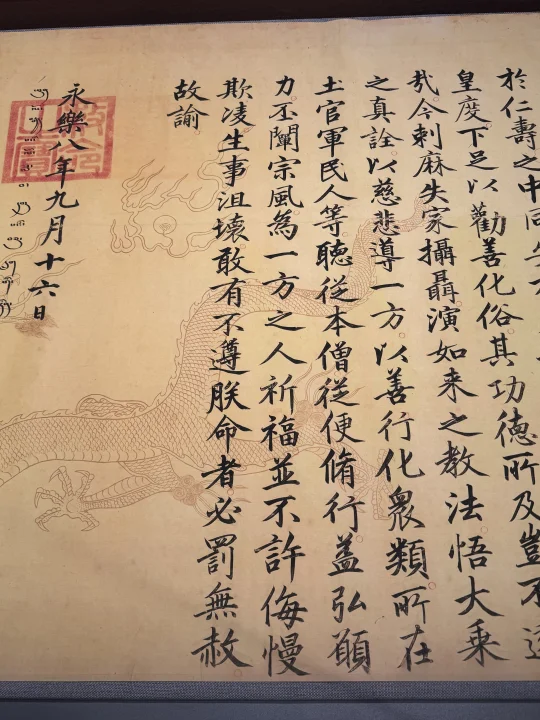 於仁壽之中同
皇度下足以勸善化俗其功德所及豈不遠
哉今剌麻失家攝聶演如来之教法悟大乘
之真詮以慈悲導一方以善行化衆類所在
土官軍民人等聽從本僧從便脩行益弘願
力丕闡宗風為一方之人祈福並不許侮慢
欺凌生事沮壞敢有不遵朕命者必罰無赦
故諭
永樂八年九月十六日